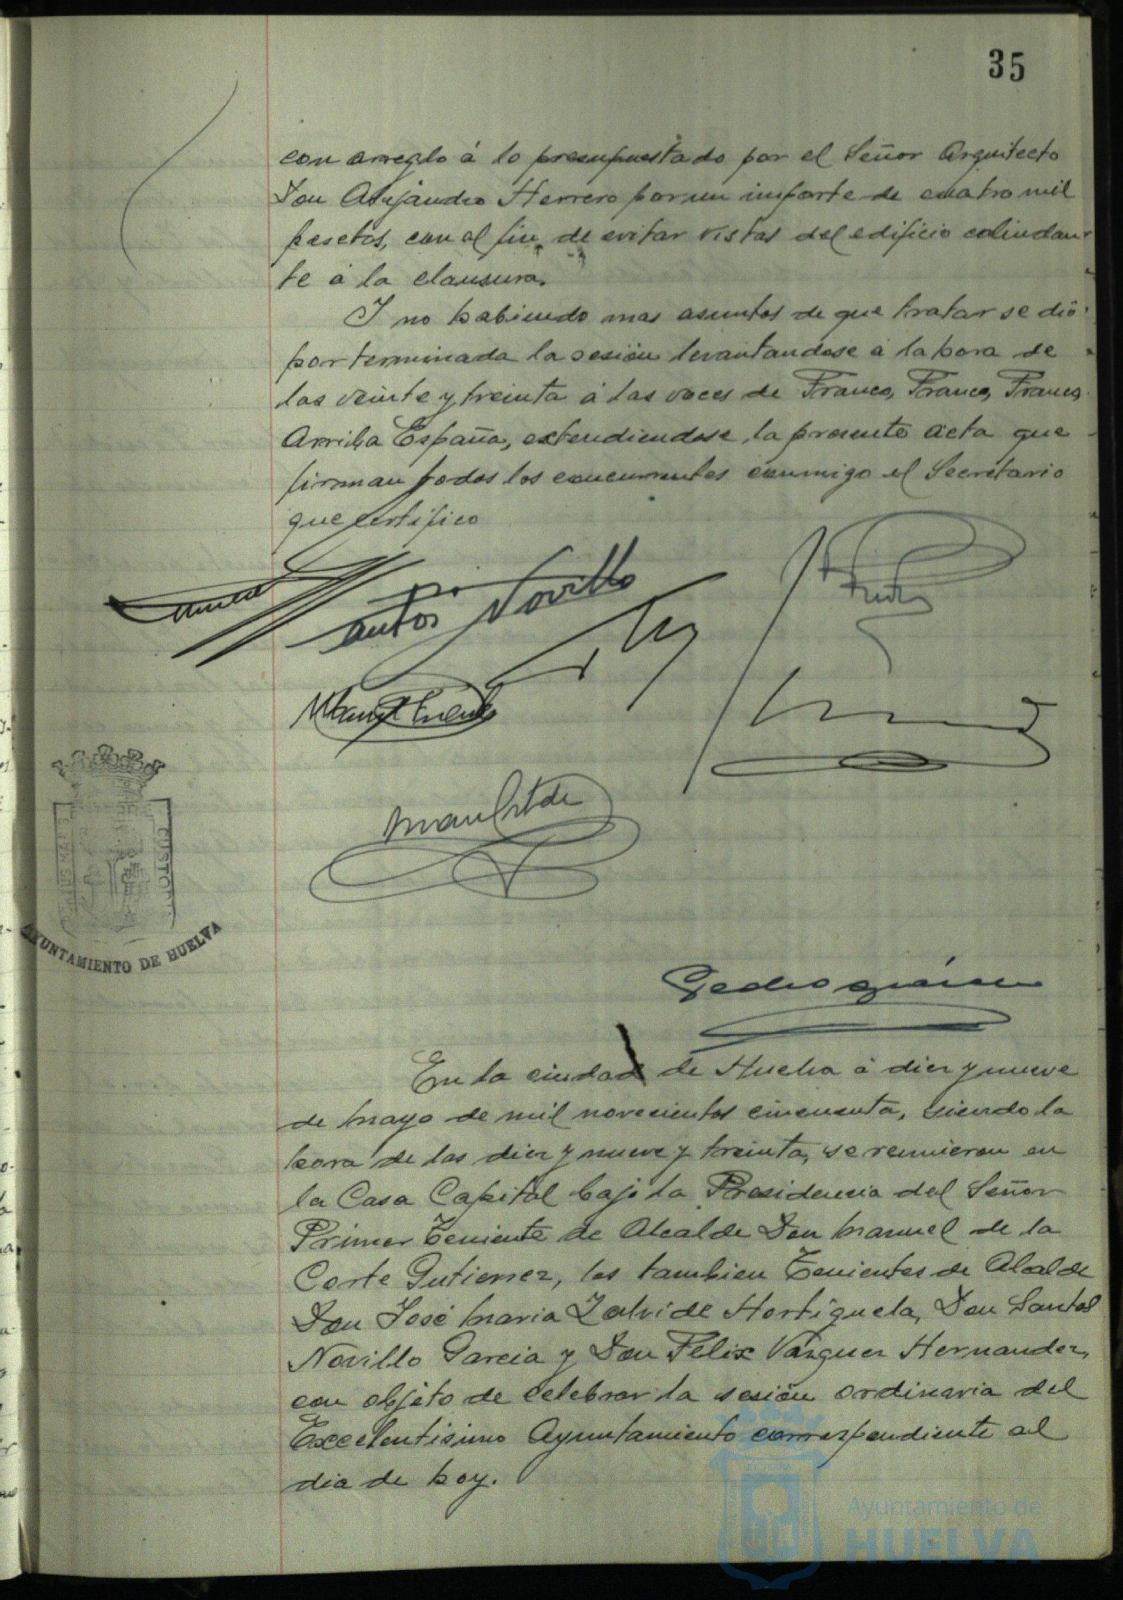 35
con arreglo á lo presupuestado por el Señor Arquitecto
Don Alejandro Herrero por un importe de cuatro mil
pesetas, con al fin de evitar vistas del edificio colindan-
te á la clausura.
Y no habiendo mas asuntos de que tratar se dió
por terminada la sesión levantandose á la hora de
las veinte y treinta á las voces de Franco, Franco, Franco
Arriba España, extendiendose la presente acta que
firman todos los concurrentes conmigo el Secretario
que certifico
Santos Novillo
CUSTODI
AYUNTAMIENTO DE HUELVA
En la ciudad de Huelva á diez y nueve
de Mayo de mil novecientos cincuenta, siendo la
hora de las diez y nueve y treinta, se reunieron en
la Casa Capitol bajo la Presidencia del Señor
Primer Teniente de Alcalde Don Manuel de la
Corte Gutierrez, los tambien Tenientes de Alcalde
Don José Maria Zalvide Hortigüela, Don Santos
Novillo Garcia y Don Felix Vázquez Hernandez,
con objeto de celebrar la sesión ordinaria del
Excelentisimo Ayuntamiento correspondiente al
dia de hoy.
Ayuntamiento de
HUELVA